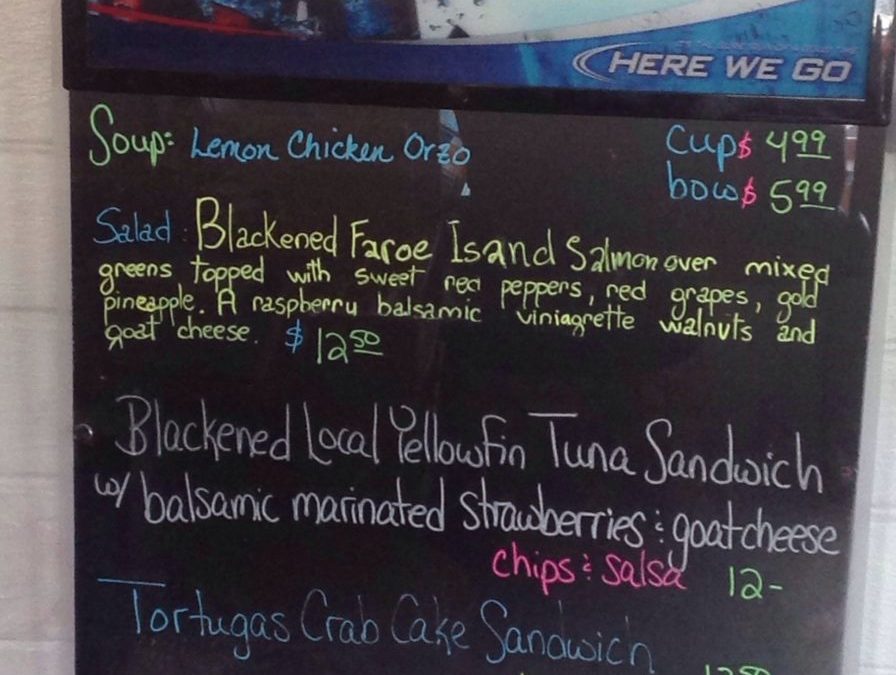 HERE WE GO
Soup: Lemon Chicken Orzo Cup $ 4.99
bowl $ 5.99
Salad: Blackened Faroe Isand Salmon over mixed
greens topped with sweet red peppers, red grapes, gold
pineapple. A raspberry balsamic viniagrette walnuts and
goat cheese. $ 12 50
Blackened Local Yellowfin Tuna Sandwich
w/ balsamic marinated strawberries & goat cheese
chips & salsa 12-
Tortugas Crab Cake Sandwich
12 50